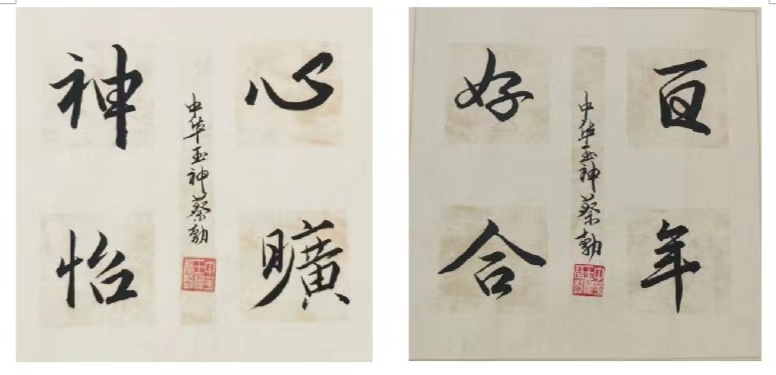 心曠
神怡
中华玉神蔡勃
百年
好合
中华玉神蔡勃